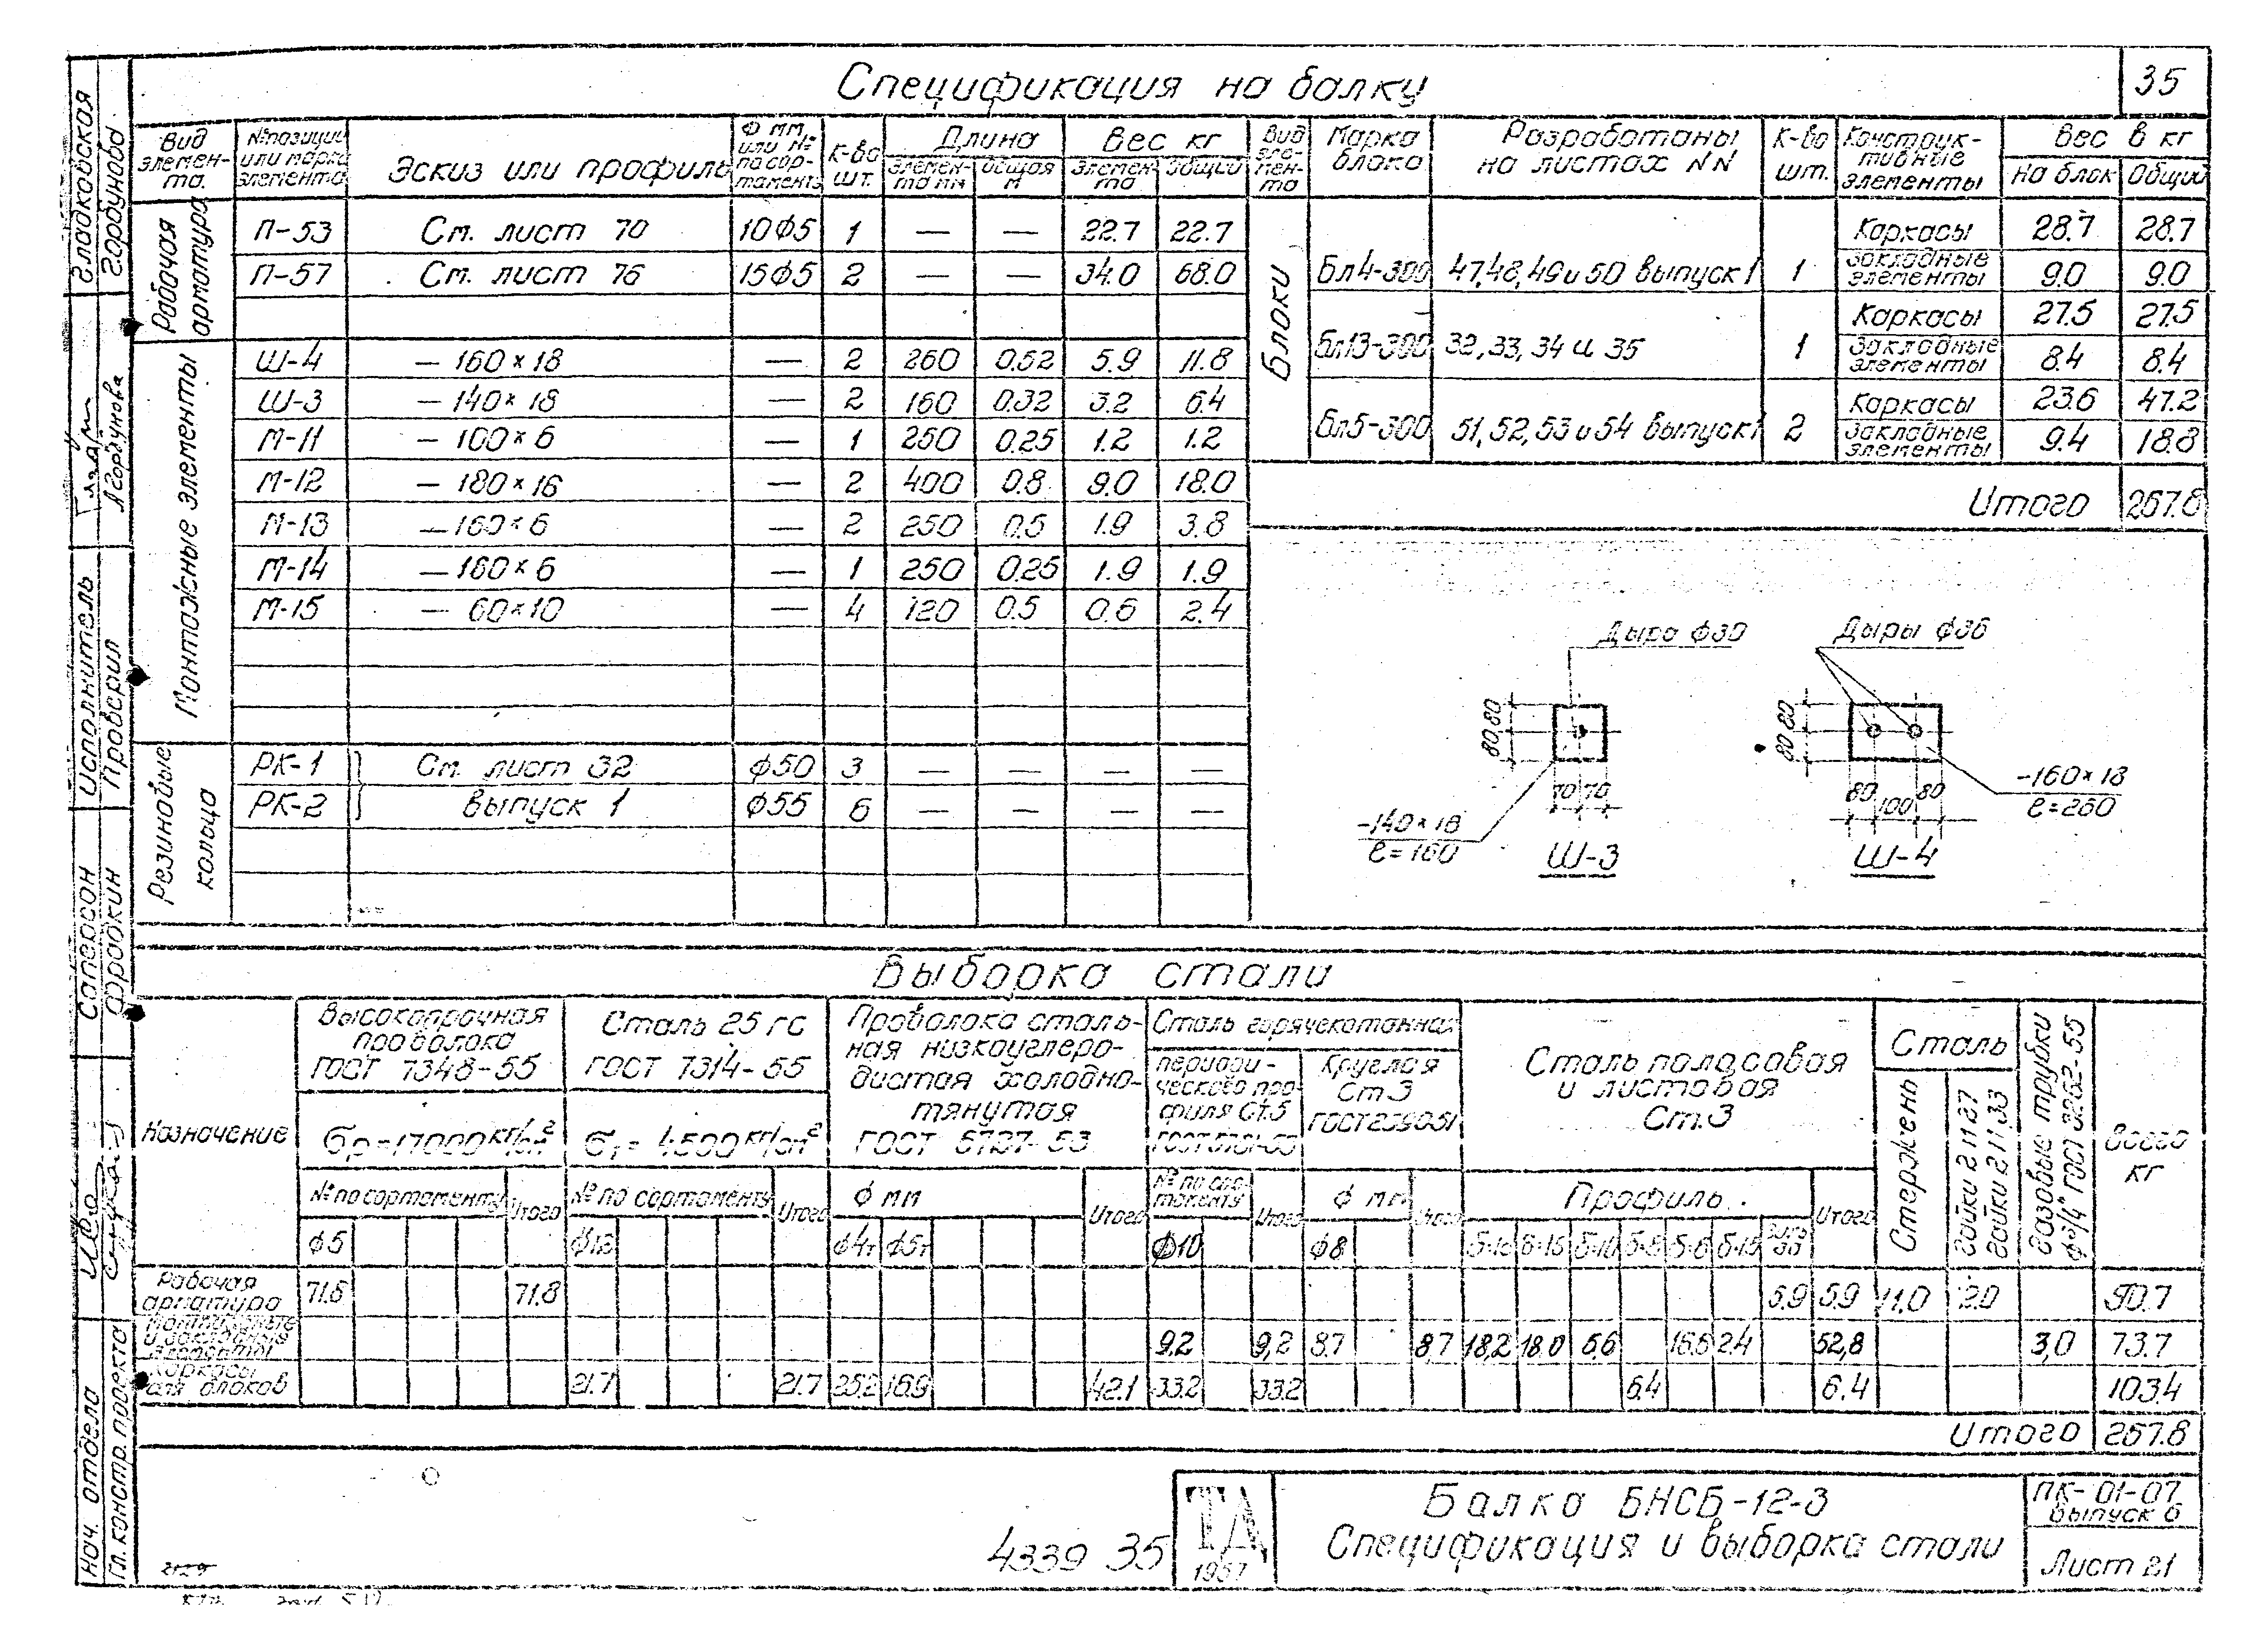 Спецификация на балку
35
Вид элемента.
№ позиции или марка элемента
Эскиз или профиль
Ф мм, или № по сортаменту
К-во шт.
Длина
элемента мм
общая м
Вес кг
элемента
общий
Вид элемента
Марка блока
Разработаны на листах NN
К-во шт.
Конструктивные элементы
Вес в кг
На блок
Общий
Рабочая арматура
П-53 См. лист 70 10Ф5 1 — — 22.7 22.7
П-57 См. лист 76 15Ф5 2 — — 34.0 68.0
Монтажные элементы
Ш-4 — 160×18 — 2 260 0.52 5.9 11.8
Ш-3 — 140×18 — 2 160 0.32 3.2 6.4
М-11 — 100×6 — 1 250 0.25 1.2 1.2
М-12 — 180×16 — 2 400 0.8 9.0 18.0
М-13 — 160×6 — 2 250 0.5 1.9 3.8
М-14 — 160×6 — 1 250 0.25 1.9 1.9
М-15 — 60×10 — 4 120 0.5 0.6 2.4
Резиновые кольца
РК-1 См. лист 32 ф50 3 — — — —
РК-2 выпуск 1 ф55 6 — — — —
Блоки
Бл4-300 47,48,49 и 50 выпуск 1 1
Каркасы 28.7 28.7
Закладные элементы 9.0 9.0
Бл13-300 32, 33, 34 и 35 1
Каркасы 27.5 27.5
Закладные элементы 8.4 8.4
Бл5-300 51, 52, 53 и 54 выпуск 1 2
Каркасы 23.6 47.2
Закладные элементы 9.4 18.8
Итого 267.8
Дыра ф30
Дыры ф36
80 80
70 70
-140×18
ℓ=160
Ш-3
80 80
80 100 80
-160×18
ℓ=260
Ш-4
Выборка стали
Назначение
Высокопрочная проволока
ГОСТ 7348-55
σр=17000 кг/см²
№ по сортаменту
Итого
ф5
Сталь 25гс
ГОСТ 7314-55
σт= 4500 кг/см²
№ по сортаменту
Итого
Проволока стальная низкоуглеродистая холоднотянутая
ГОСТ 6727-53
ф мм
Итого
ф4т ф5т
Сталь горячекатанная
периодического профиля Ст.5
№ по сортаменту
Итого
Ф10
Круглая Ст 3
ф мм
Итого
ф8
Сталь полосовая и листовая
Ст.3
Профиль
Итого
Сталь
Стержень
Газовые трубки ф3/4" ГОСТ 3262-55
Всего кг
Рабочая арматура 71.8 5.9 5.9 11.0 2.0 90.7
Монтажные и закладные элементы 9.2 9,2 8.7 8,7 18,2 18.0 6,6 2.4 62,8 3,0 73.7
Каркасы для блоков 21.7 21.7 25.2 16.9 42.1 33.2 33.2 6.4 6.4 103.4
Итого 267.8
ТД
1957
Балка БНСБ-12-3
Спецификация и выборка стали
ПК-01-07
выпуск 6
Лист 21
4339 35
Нач. отдела
Гл. констр. проекта
Саперсон
Фрадкин
Исполнитель
Проверил
Гладковская
Горбунова